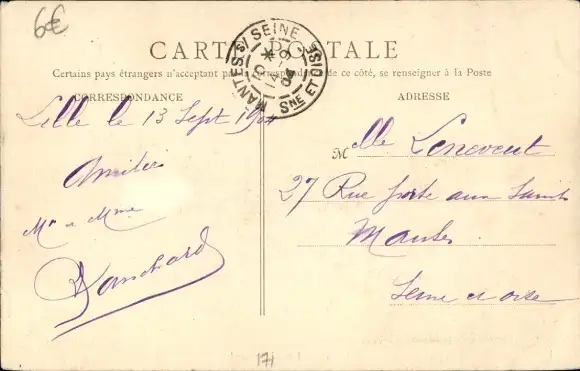 6€
CARTE POSTALE
Certains pays étrangers n'acceptant pas la correspondance de ce côté, se renseigner à la Poste
CORRESPONDANCE
ADRESSE
MANTES S/ SEINE
SNE ET OISE
14 -9
04
Lille le 13 Sept 1904
Amitiés
Mr et Mme
Blanchard
Melle
27 Rue porte aux Saints
Mantes
Seine et oise
171